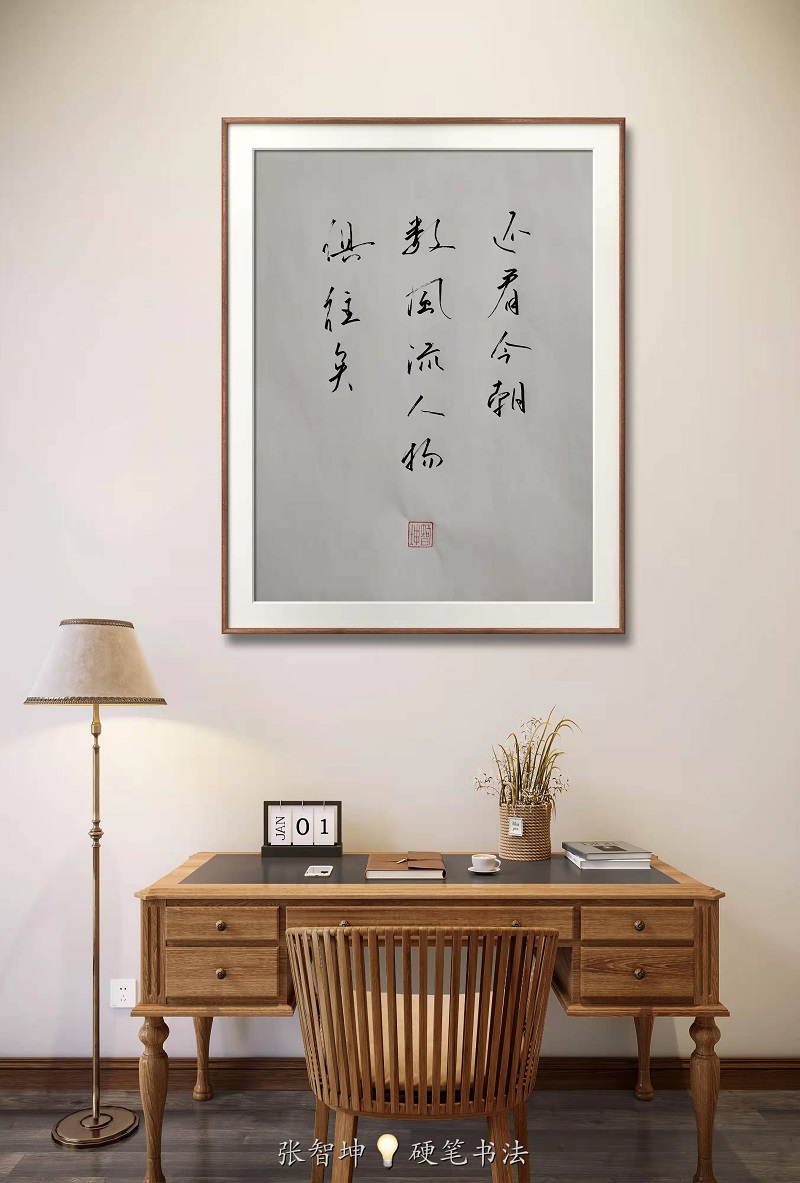 俱往矣
数風流人物
还看今朝
智坤
JAN 01
张智坤💡硬笔书法